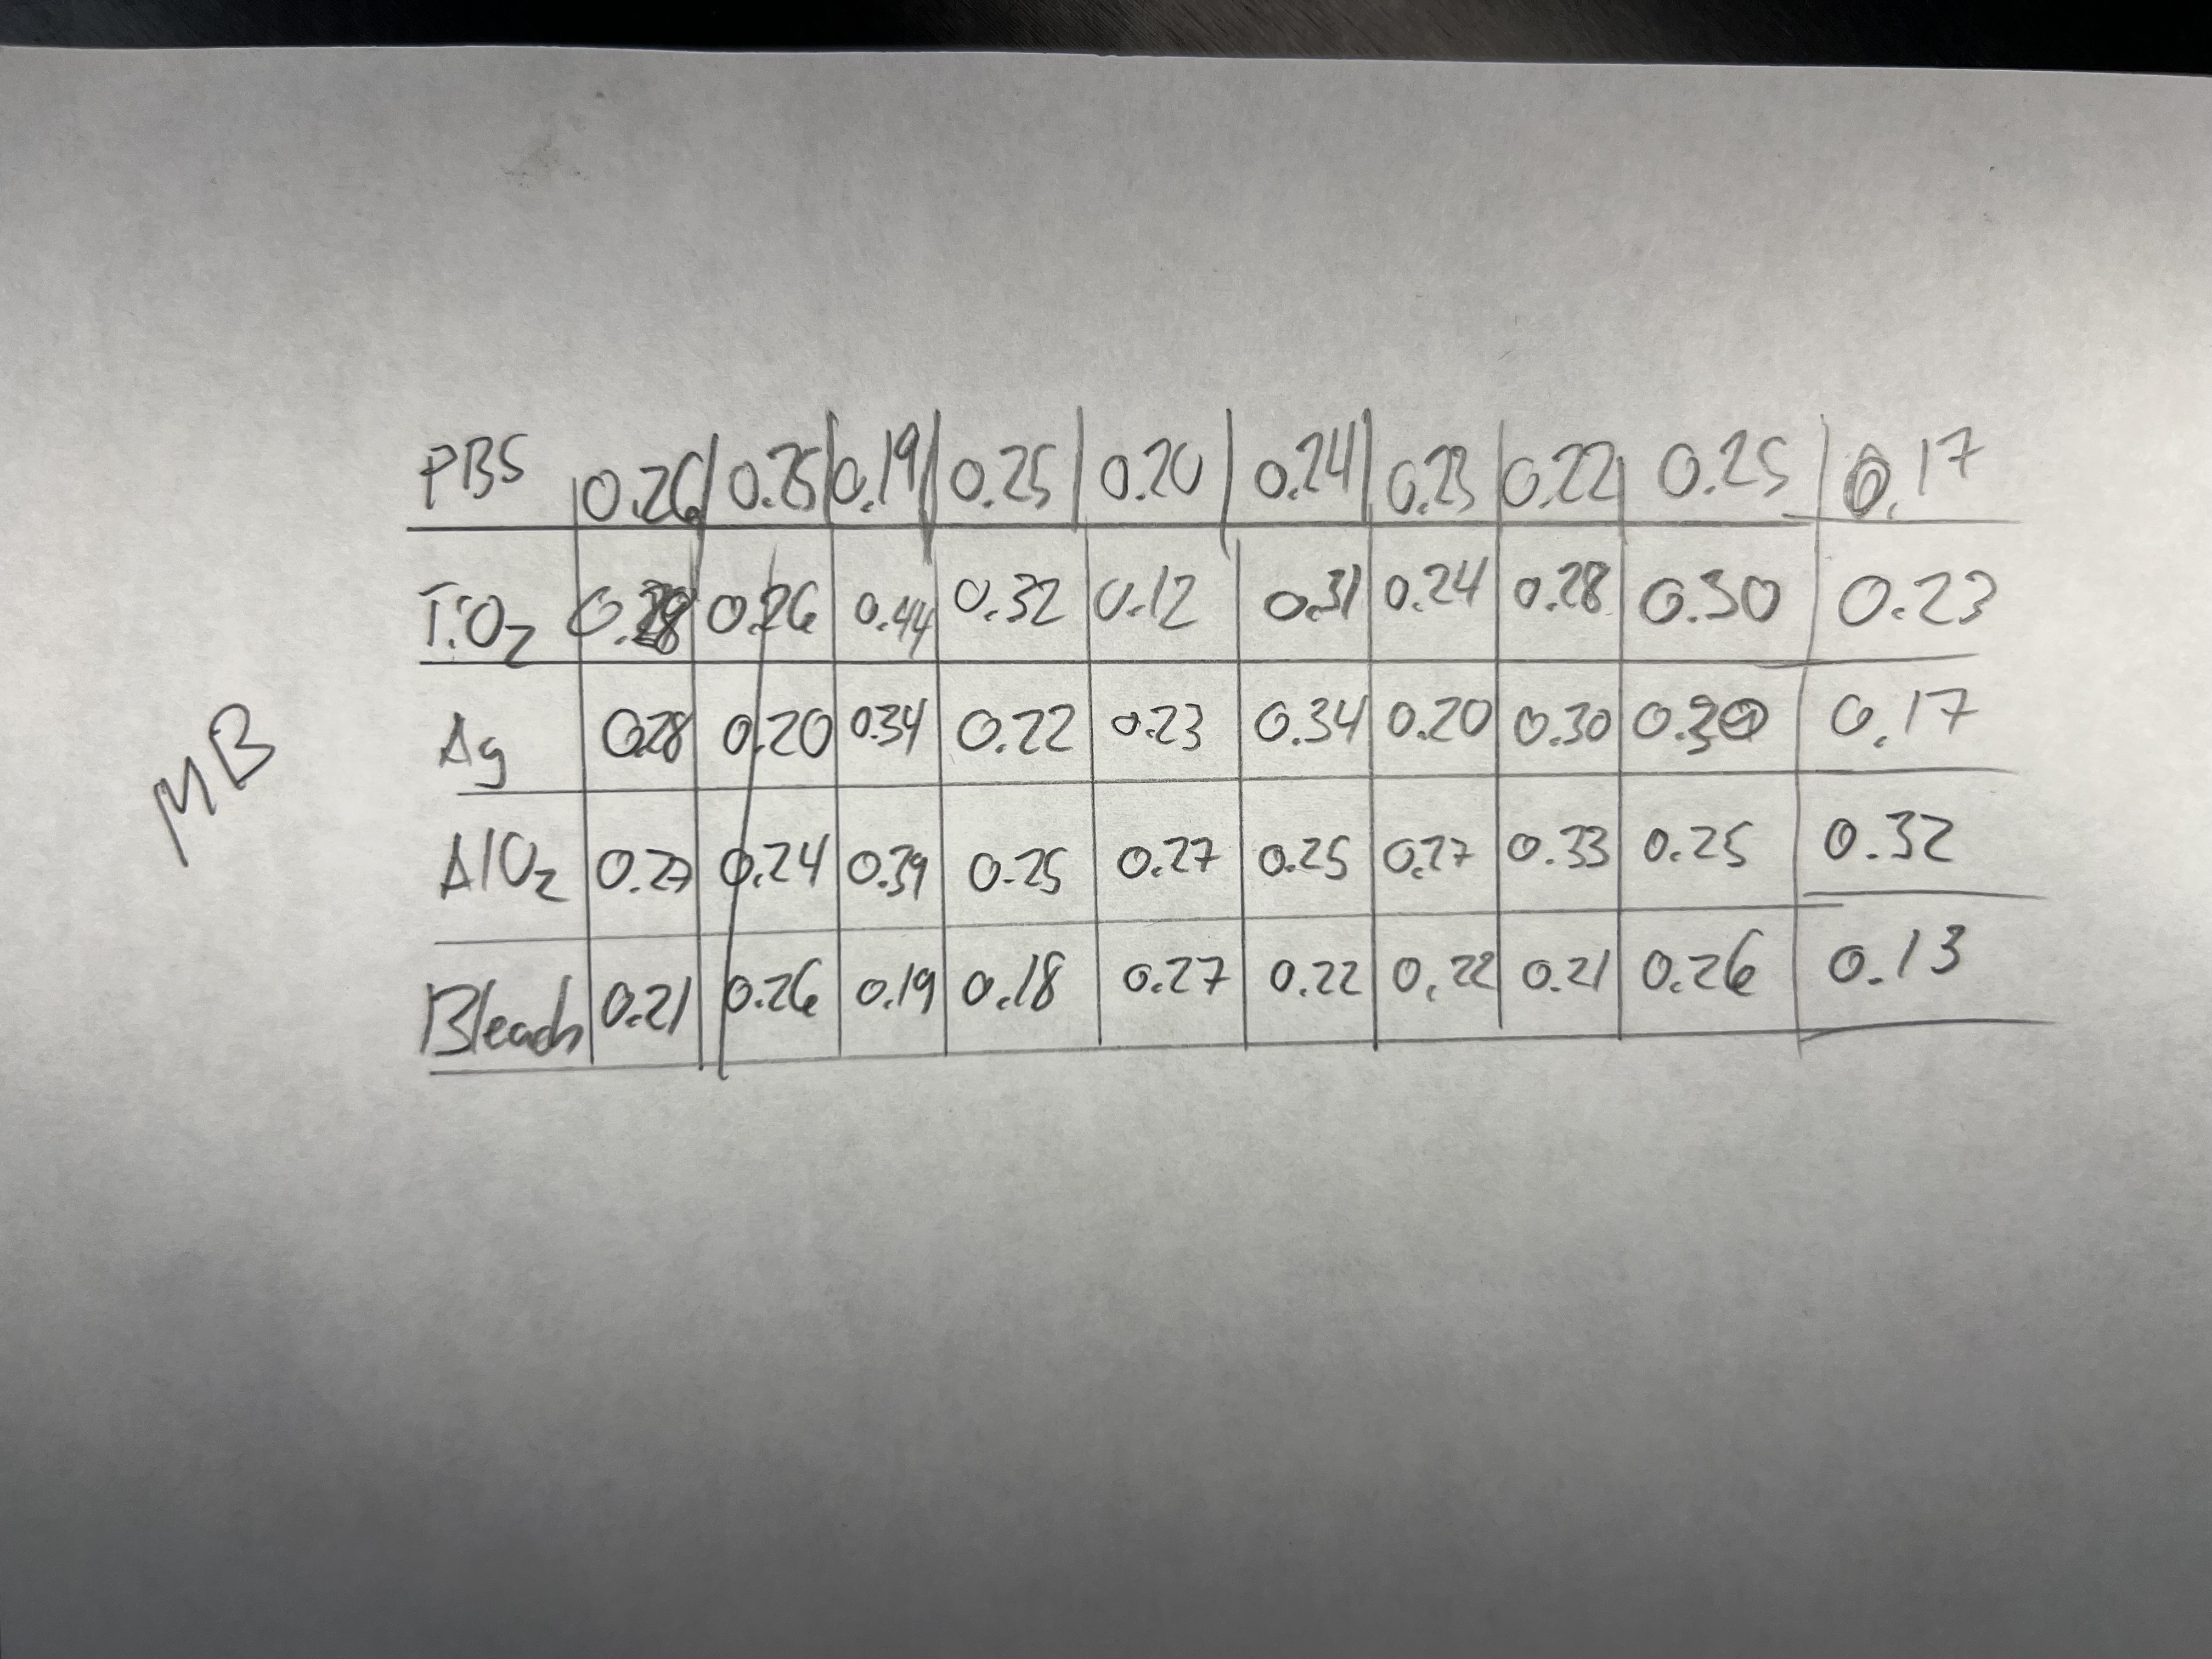 MB
PBS 0.26 0.25 0.19 0.25 0.20 0.24 0.23 0.22 0.25 0.17
TiO2 0.26 0.44 0.32 0.12 0.31 0.24 0.28 0.30 0.23
Ag 0.28 0.20 0.34 0.22 0.23 0.34 0.20 0.30 0.17
AlO2 0.27 0.24 0.39 0.25 0.27 0.25 0.27 0.33 0.25 0.32
Bleach 0.21 0.26 0.19 0.18 0.27 0.22 0.22 0.21 0.26 0.13